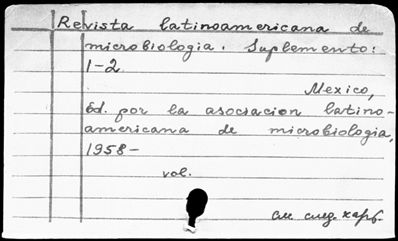 Revista latinoamericana de
microbiologia. Suplemento:
1-2
Mexico,
éd. por la asociacion latino-
americana de microbiologia,
1958-
vol.
см. след. карт.